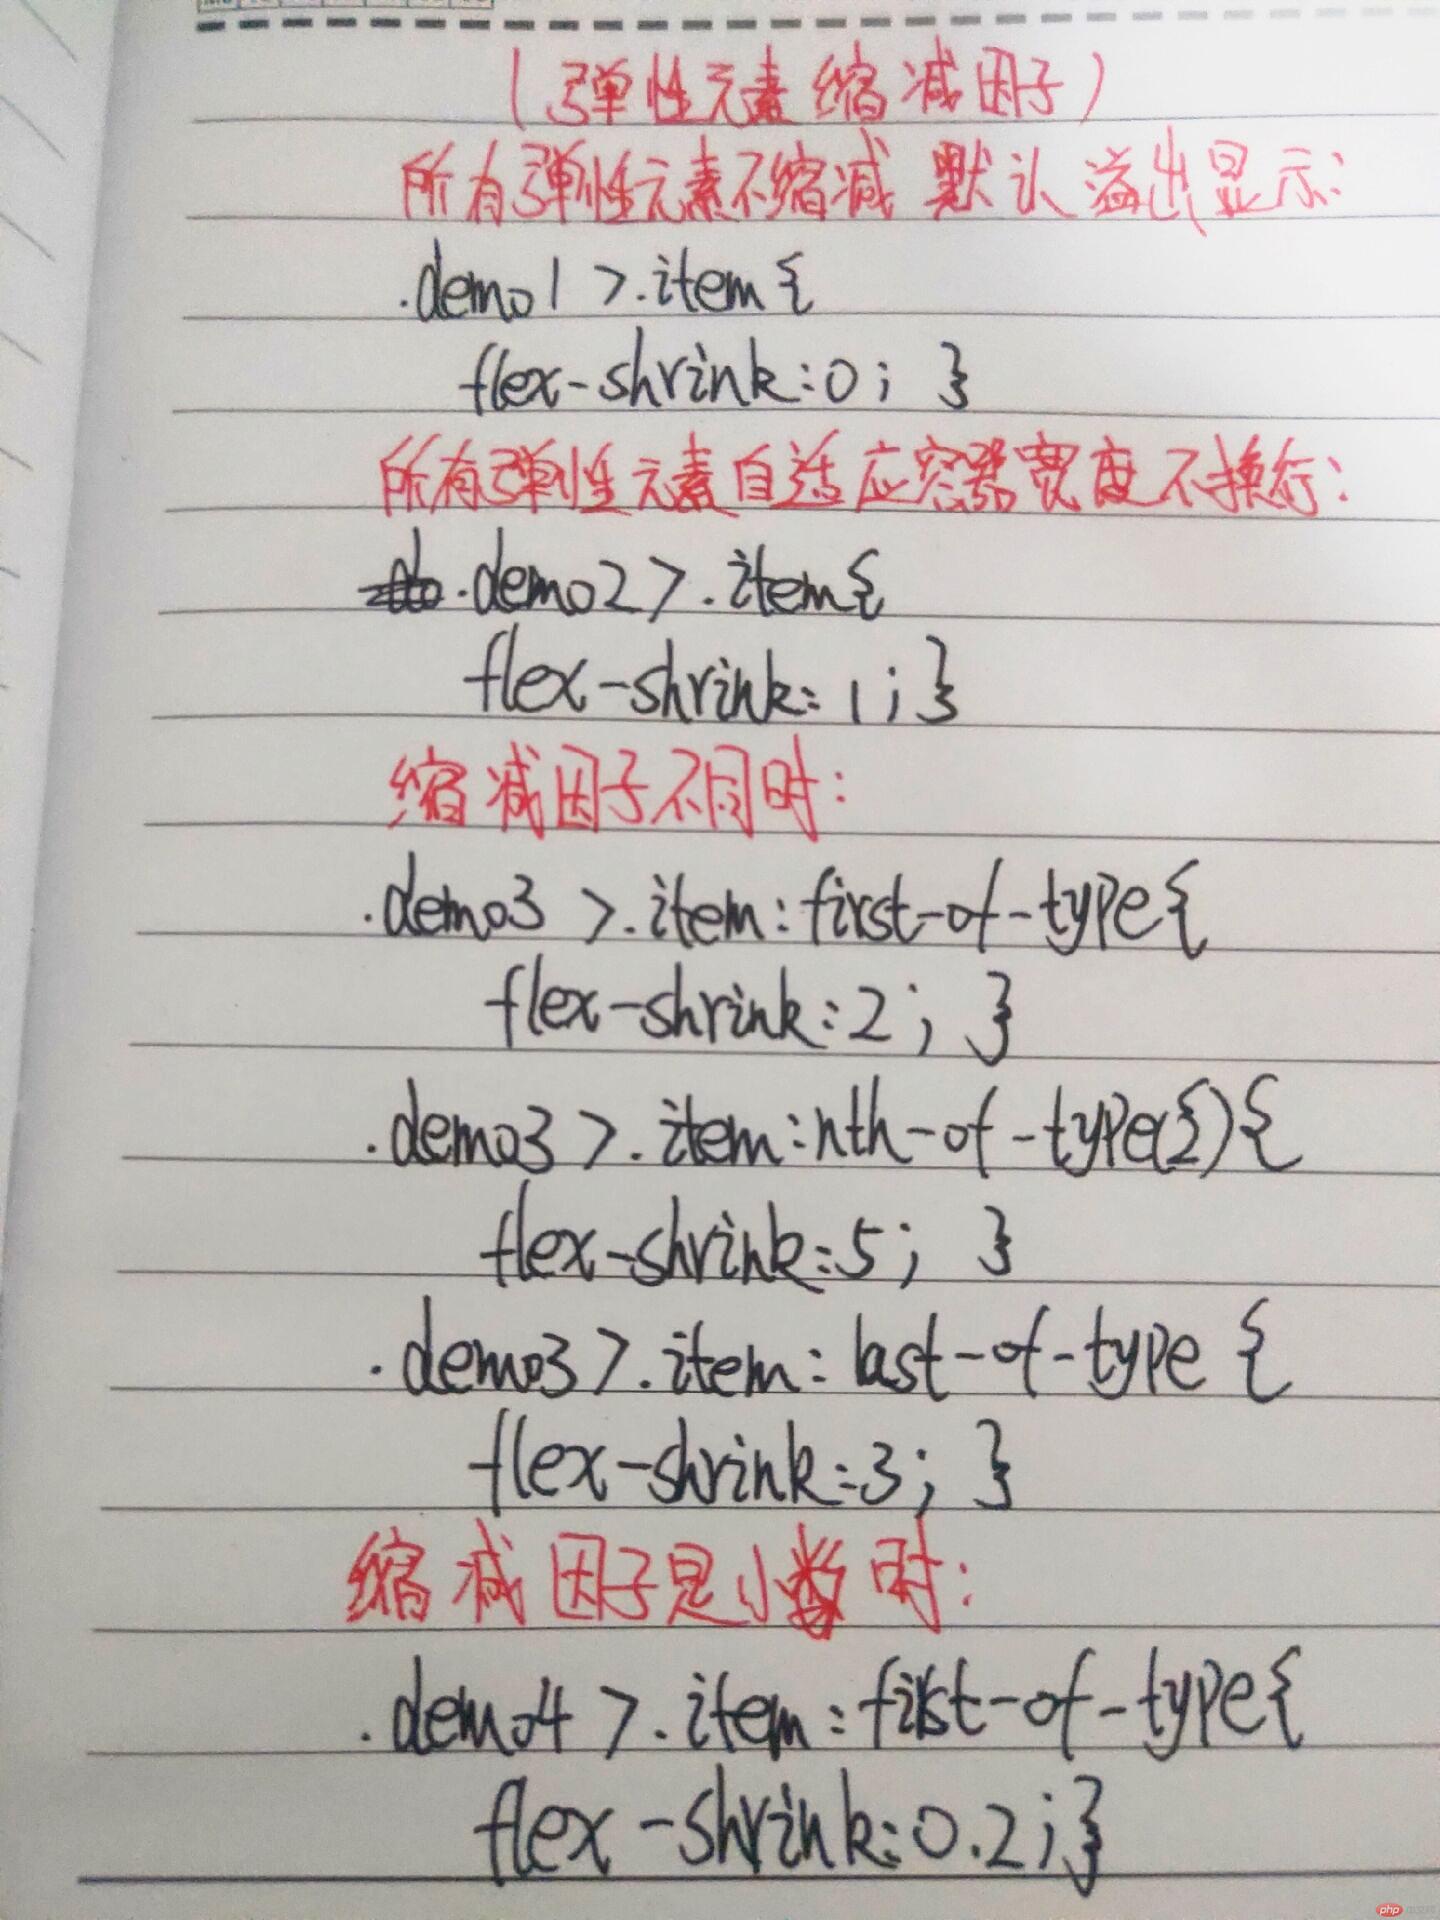 (弹性元素缩减因子)
所有弹性元素不缩减 默认溢出显示:
.demo1 >.item {
flex-shrink:0; }
所有弹性元素自适应容器宽度不换行:
.demo2>.item{
flex-shrink:1;}
缩减因子不同时:
.demo3 >.item:first-of-type{
flex-shrink:2; }
.demo3 >.item:nth-of-type(2){
flex-shrink:5; }
.demo3>.item:last-of-type {
flex-shrink:3; }
缩减因子是小数时:
.demo4 >.item:first-of-type{
flex-shrink:0.2;}
php